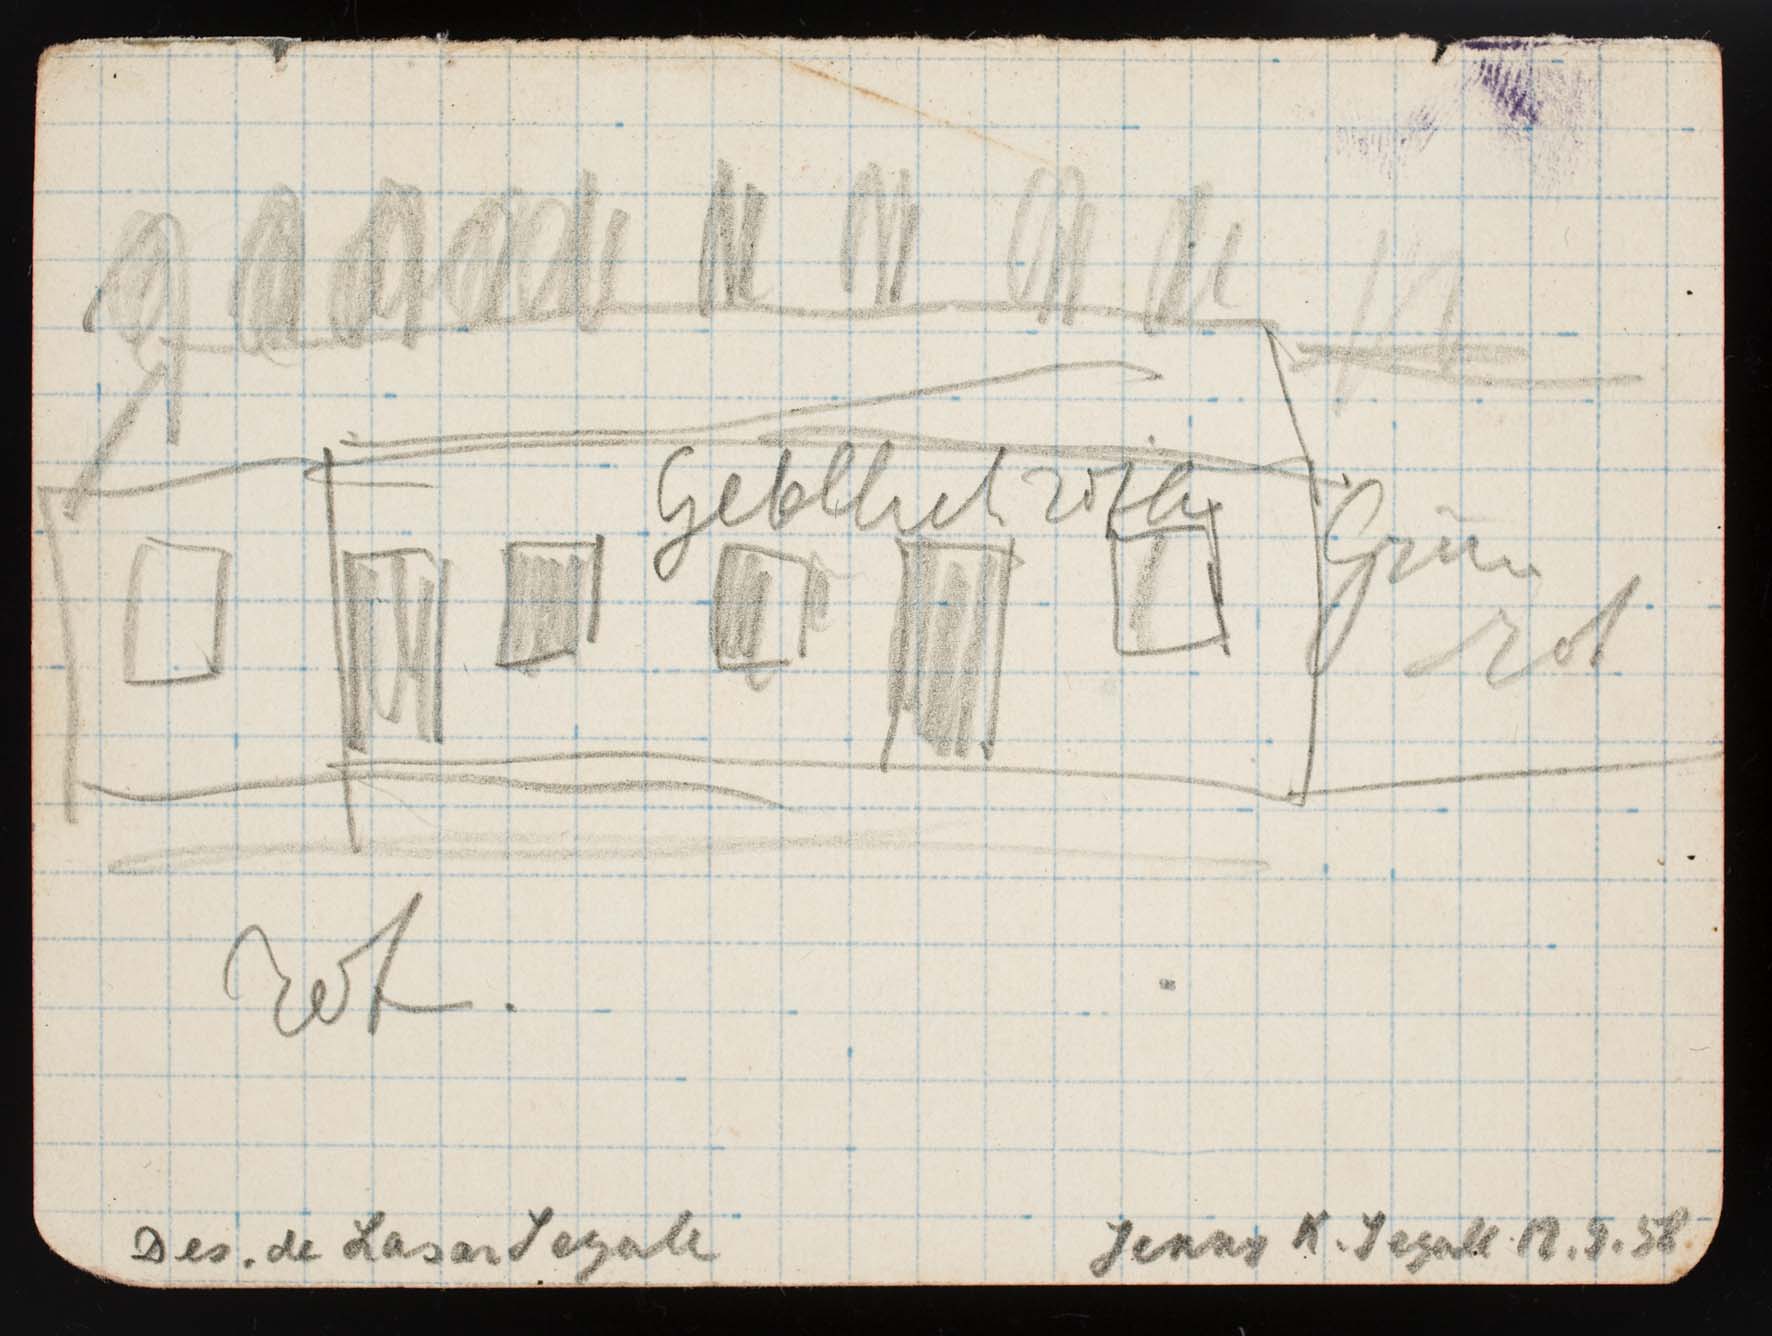 Gelblich röthl
Grün
rot
rot.
Des. de Lasar Segall
Jenny K. Segall 18.9.58